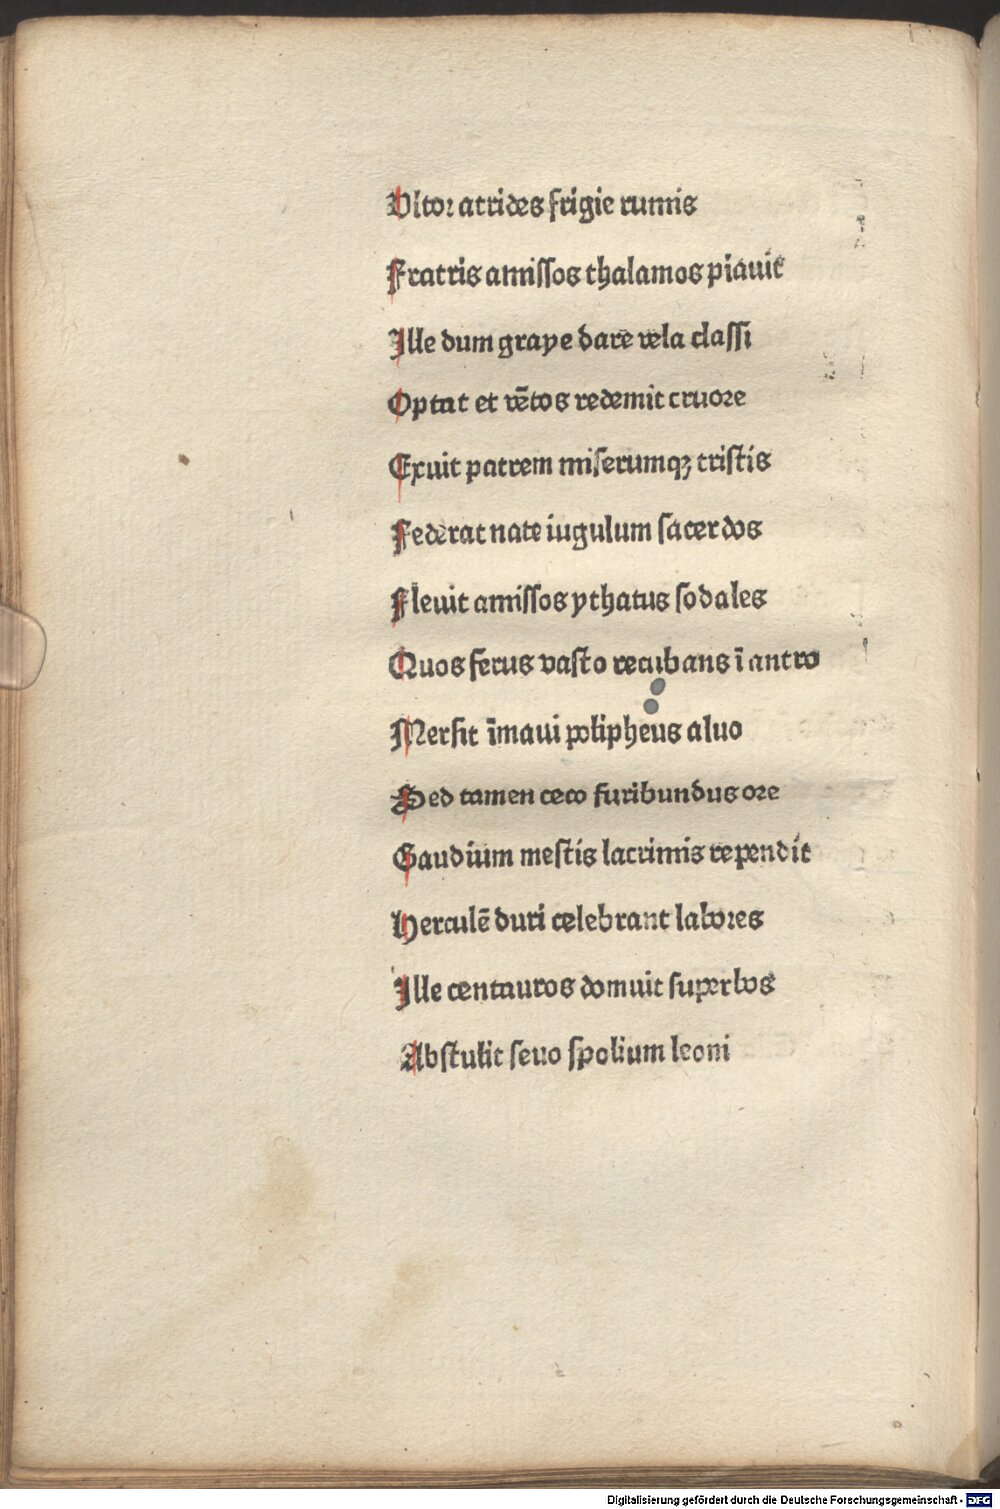 Ultor atrides frigie ruinis
Fratris amissos thalamos piauit
Ille dum graye dare vela classi
Optat et vētos redemit cruore
Exuit patrem miserumqꝫ tristis
Federat nate iugulum sacerdos
Fleuit amissos ythatus sodales
Quos ferus vasto recubans ī antro
Mersit īmaui polipheus aluo
Sed tamen ceco furibundus ore
Gaudium mestis lacrimis rependit
Herculē duri celebrant labores
Ille centauros domuit superbos
Abstulit seuo spolium leoni
Digitalisierung gefördert durch die Deutsche Forschungsgemeinschaft - DFG